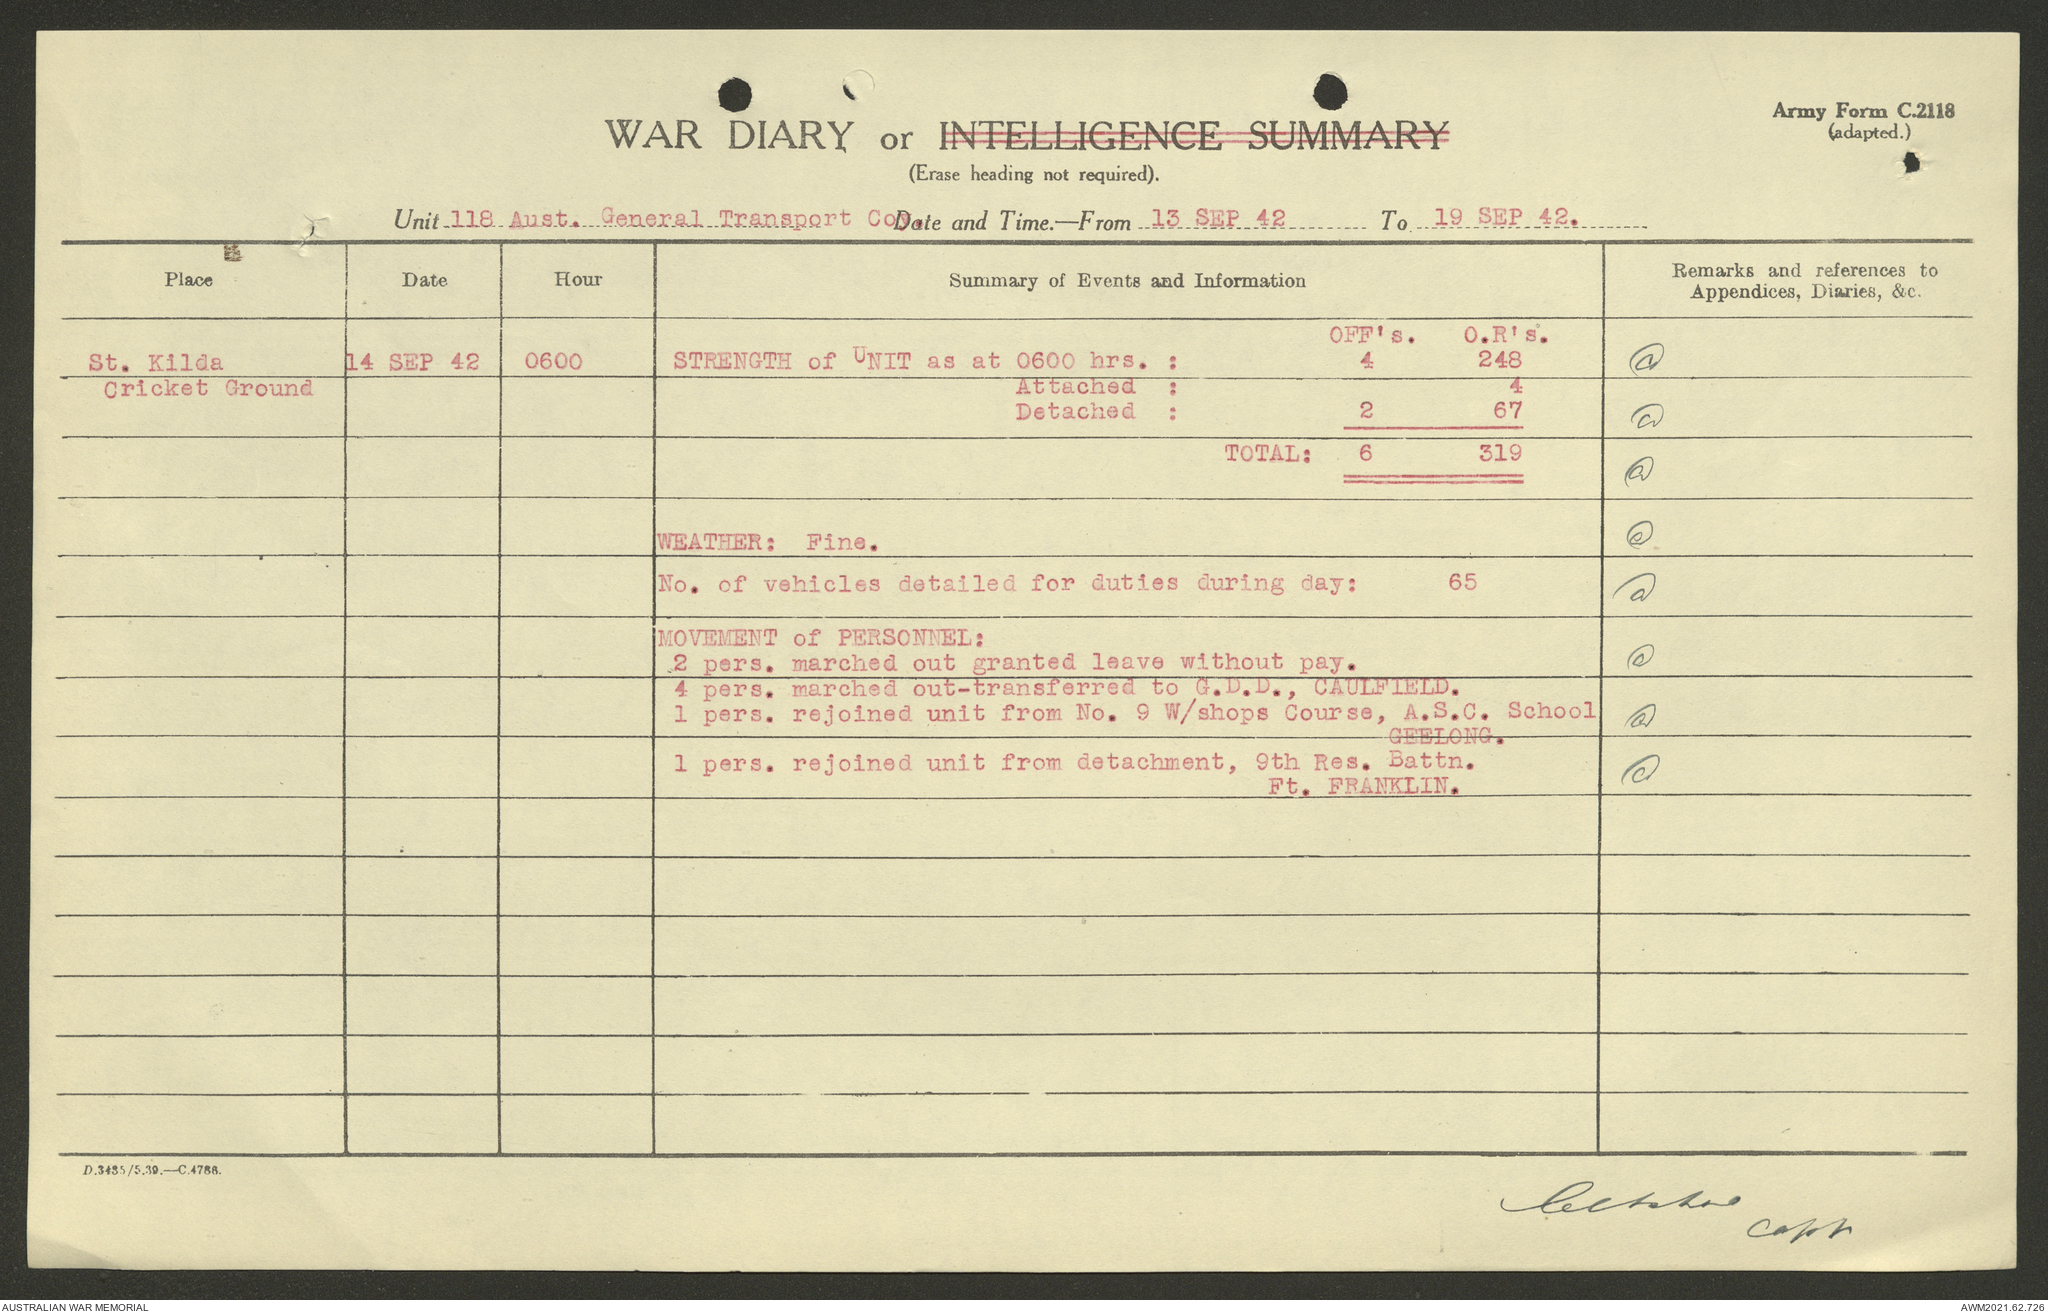 Army Form C.2118
(adapted.)
WAR DIARY or INTELLIGENCE SUMMARY
(Erase heading not required).
Unit 118 Aust. General Transport Coy. Date and Time.—From 13 SEP 42 To 19 SEP 42.
Place Date Hour Summary of Events and Information Remarks and references to
Appendices, Diaries, &c.
OFF's. O.R's.
St. Kilda 14 SEP 42 0600 STRENGTH of UNIT as at 0600 hrs. : 4 248
Cricket Ground Attached : 4
Detached : 2 67
TOTAL: 6 319
WEATHER: Fine.
No. of vehicles detailed for duties during day: 65
MOVEMENT of PERSONNEL:
2 pers. marched out granted leave without pay.
4 pers. marched out-transferred to G.D.D., CAULFIELD.
1 pers. rejoined unit from No. 9 W/shops Course, A.S.C. School
GEELONG.
1 pers. rejoined unit from detachment, 9th Res. Battn.
Ft. FRANKLIN.
D.3485/5.39.—C.4786.
Capt
AUSTRALIAN WAR MEMORIAL AWM2021.62.726